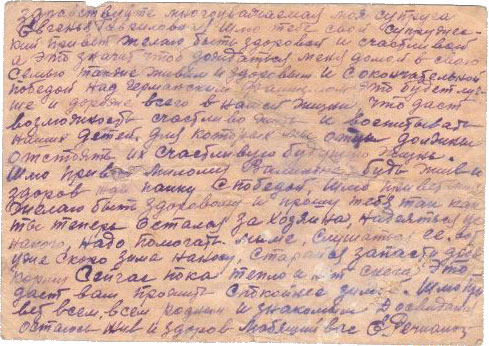 здравствуйте многоуважаемая моя супруга
Евгенья Гавриловна Шлю тебе свой супружес-
кий привет желаю быть здоровой и счастливой
а это значит чтоб дождаться меня домой в свою
Семью также живым и здоровым и С окончательной
победой над германским это будет луч-
ше и дороже всего в нашей жизни, что даст
возможность счастливо жить и воспитывать
наших детей, для которых мы отцы должны
отстоять их счастливую будущую жизнь.
Шлю привет милому будь жив и
здоров жди папку С победой, Шлю привет
желаю быть здоровым и прошу тебя так как
ты теперь Остался за хозяина, надеяться не
накого, надо помогать маме, слушаться ее,
уже скоро зима наносу, Старайся запасти дров
Сейчас пока тепло и нет снега, Это
даст вам прожить спокойнее зиму. Шлю при
вет всем, всем родным и знакомым Досвидания
остаюсь жив и здоров Любящий вас